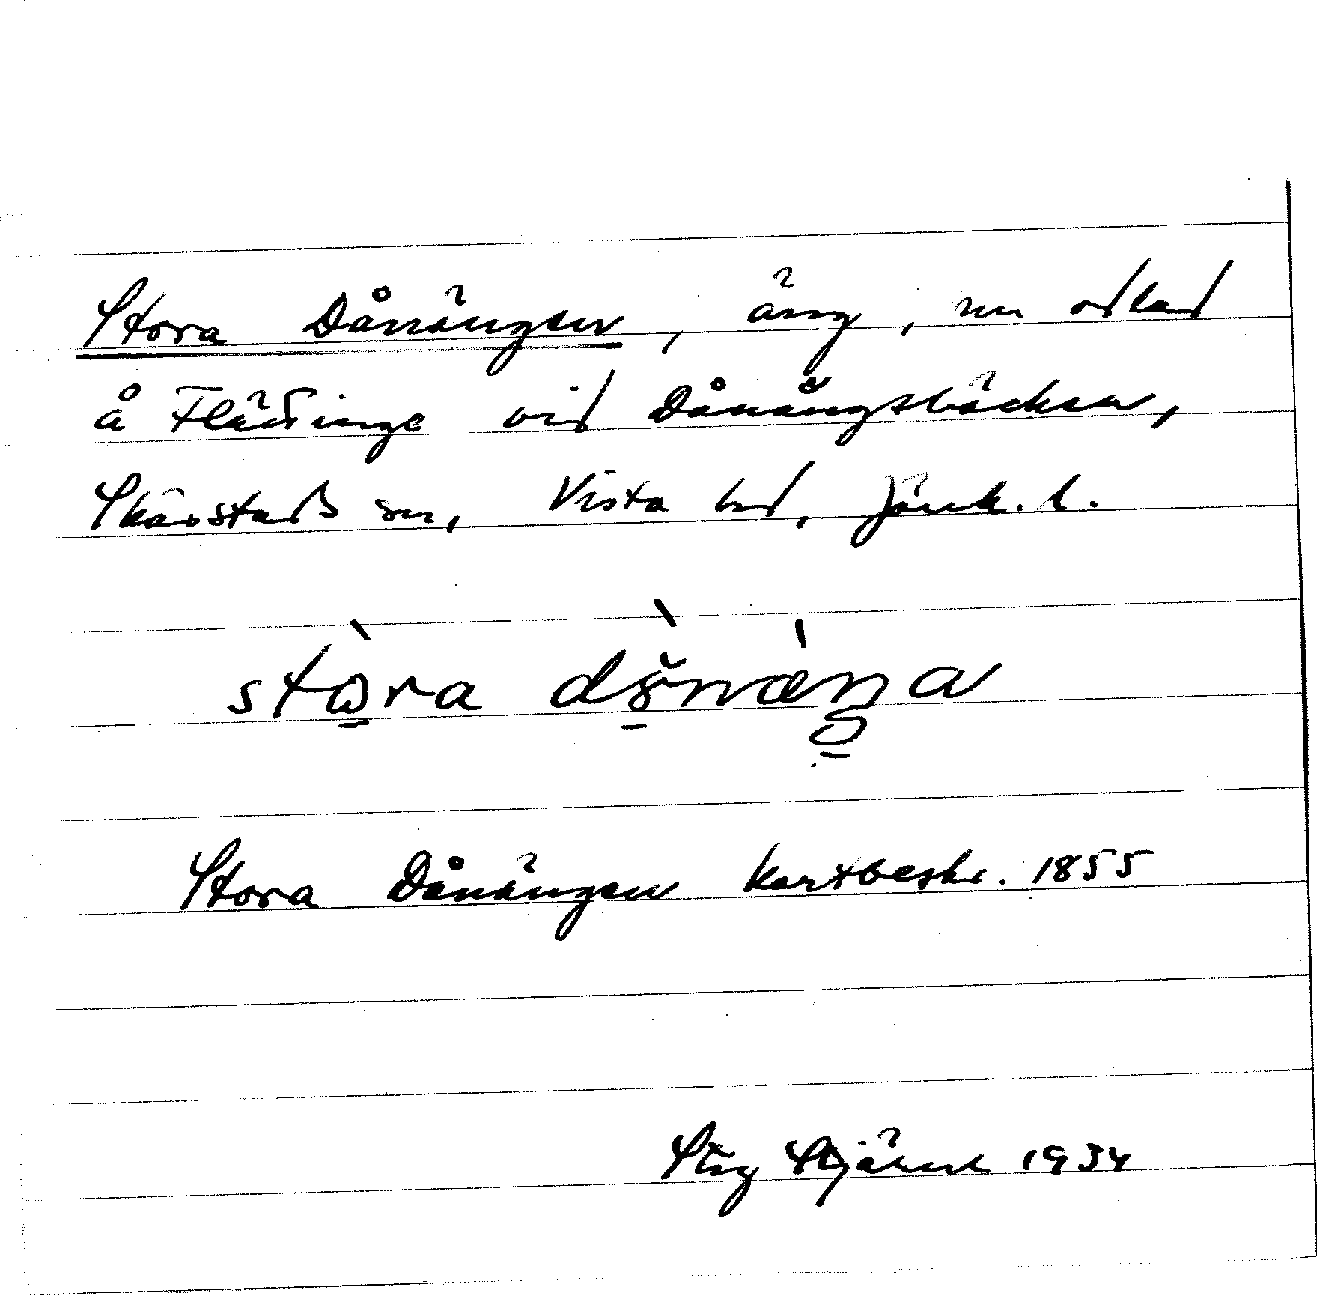 Stora Dånängen, äng, nu odlad
å Flädinge vid Dånängsbäcken,
Skärstads sn, Vista hd, Jönk. l.
Stora Dånängen kartbeskr. 1855
Stig Stjärne 1934